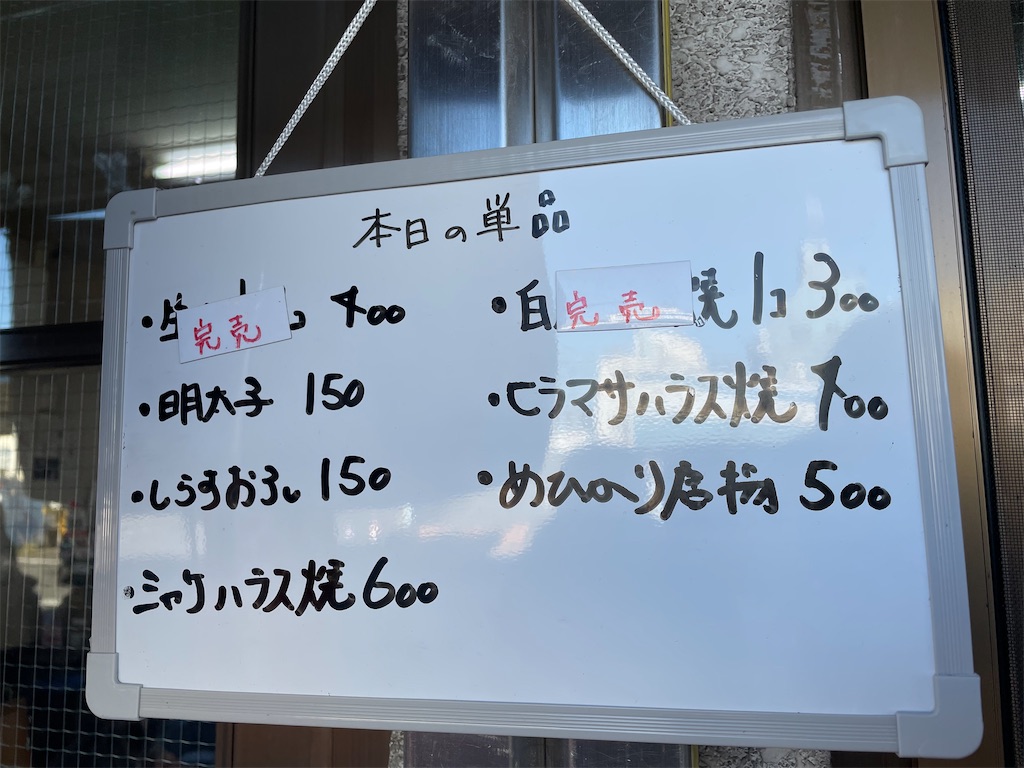 本日の単品
・生 完売 コ 400
・明太子 150
・しらすおろし 150
・シャケハラス焼 600
・白 完売 焼 1コ 300
・ヒラマサハラス焼 700
・めひかり唐揚 500